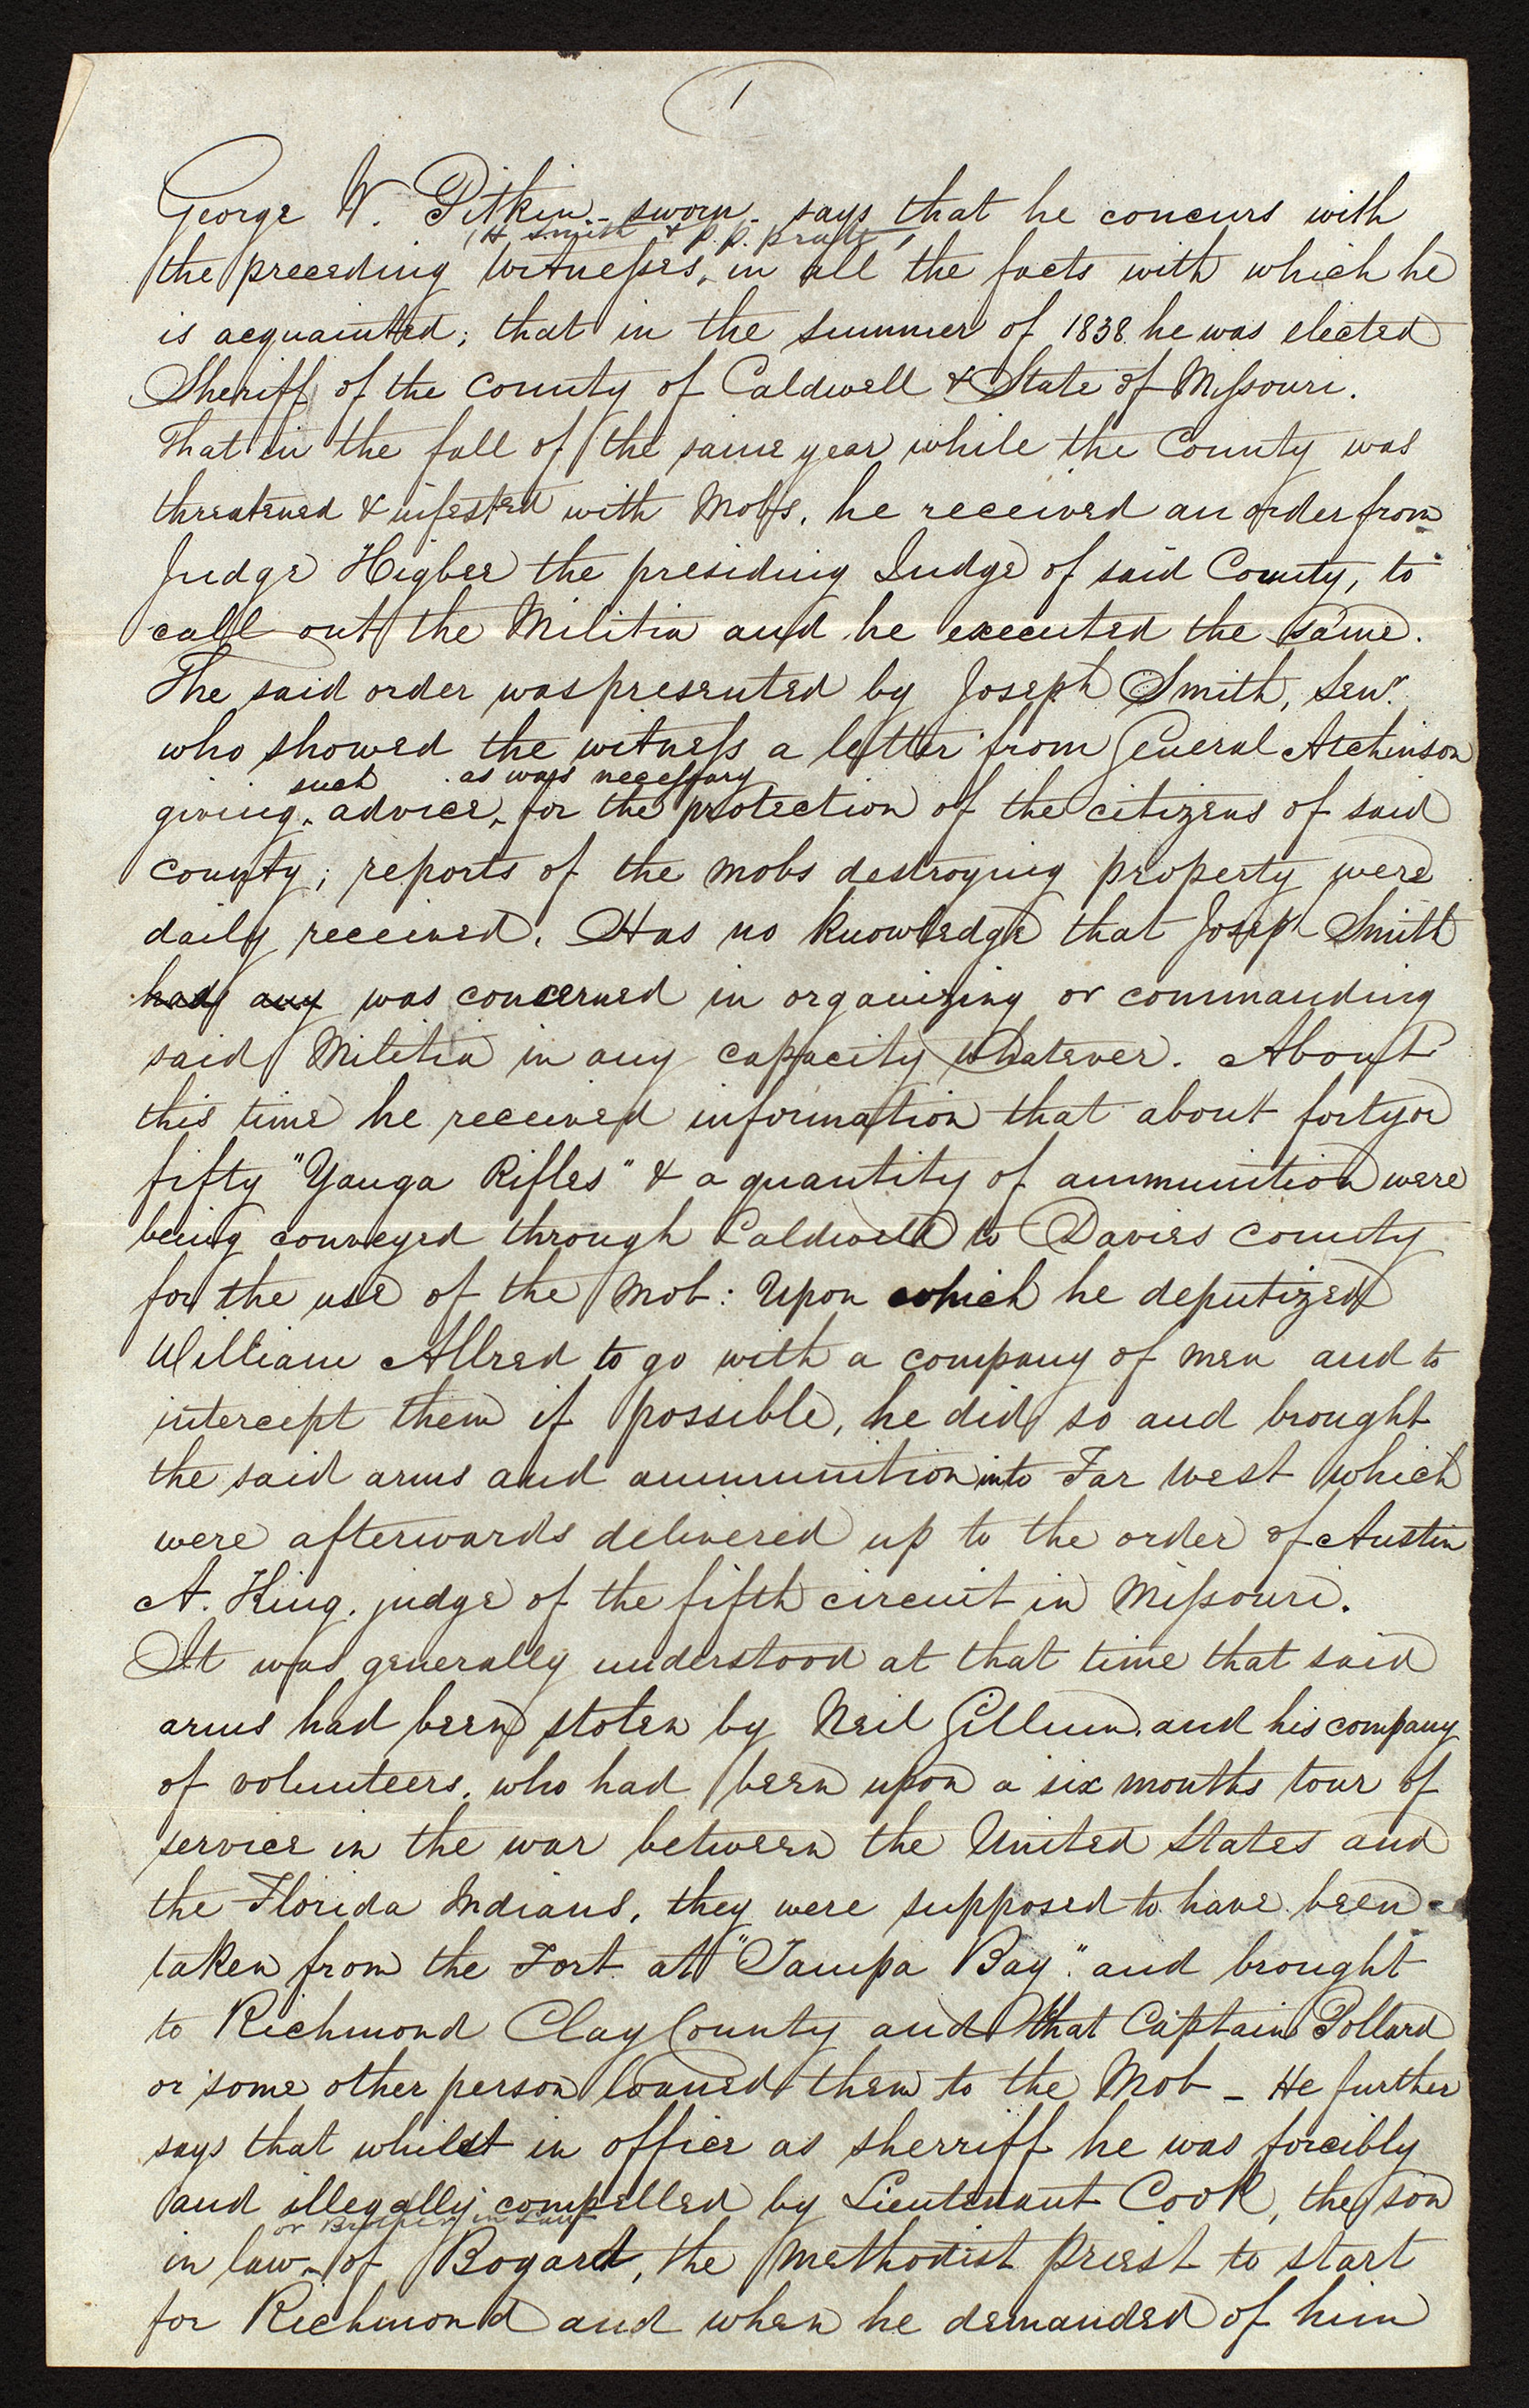 1
George W. Pitkin.- sworn- says that he concurs with
(H Smith & P. P. Pratt)
the preceding witnesses, in all the facts with which he
is acquainted; that in the summer of 1838. he was elected
Sheriff of the county of Caldwell & State of Missouri.
That in the fall of the same year while the County was
threatened & infested with Mobs. he received an order from
Judge Higbee the presiding Judge of said County, to
call out the Militia and he executed the same.
The said order was presented by Joseph Smith, Senr.
who showed the witness a letter from General Atchinson
such as was necessary
giving advice, for the protection of the citizens of said
county; reports of the mobs destroying property were
daily received. Has no knowledge that Joseph Smith
had any was concerned in organizing or commanding
said Militia in any capacity whatever. About
this time he received information that about forty or
fifty "Yauga Rifles" & a quantity of ammunition were
being conveyed through Caldwell to Davies county
for the use of the Mob: Upon which he deputized
William Allred to go with a company of men and to
intercept them if possible, he did so and brought
the said arms and ammunition into Far West which
were afterwards delivered up to the order of Austin
A. King. judge of the fifth circuit in Missouri.
It was generally understood at that time that said
arms had been stolen by Neil Gillum. and his company
of volunteers. who had been upon a six months tour of
service in the war between the United States and
the Florida Indians. they were supposed to have been
taken from the Fort at "Tampa Bay." and brought
to Richmond Clay County and that Captain Pollard
or some other person loaned them to the Mob - He further
says that whilst in office as sherriff he was forcibly
and illegally compelled by Lieutenant Cook, the son
or Brother in Law
in law of Bogard, the Methodist priest to start
for Richmond and when he demanded of him